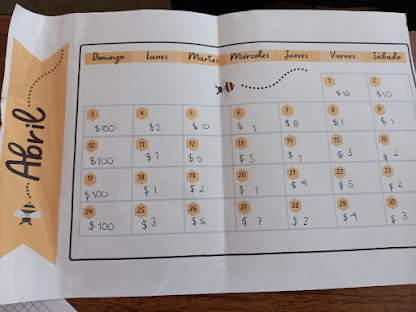 Abril
Domingo Lunes Martes Miércoles Jueves Viernes Sábado
1 2
$10 $10
3 4 5 6 7 8 9
$100 $2 $10 $1 $8 $1 $1
10 11 12 13 14 15 16
$100 $1 $5 $3 $1 $3 $2
17 18 19 20 21 22 23
$100 $1 $2 $1 $4 $5 $2
24 25 26 27 28 29 30
$100 $3 $5 $7 $2 $4 $3